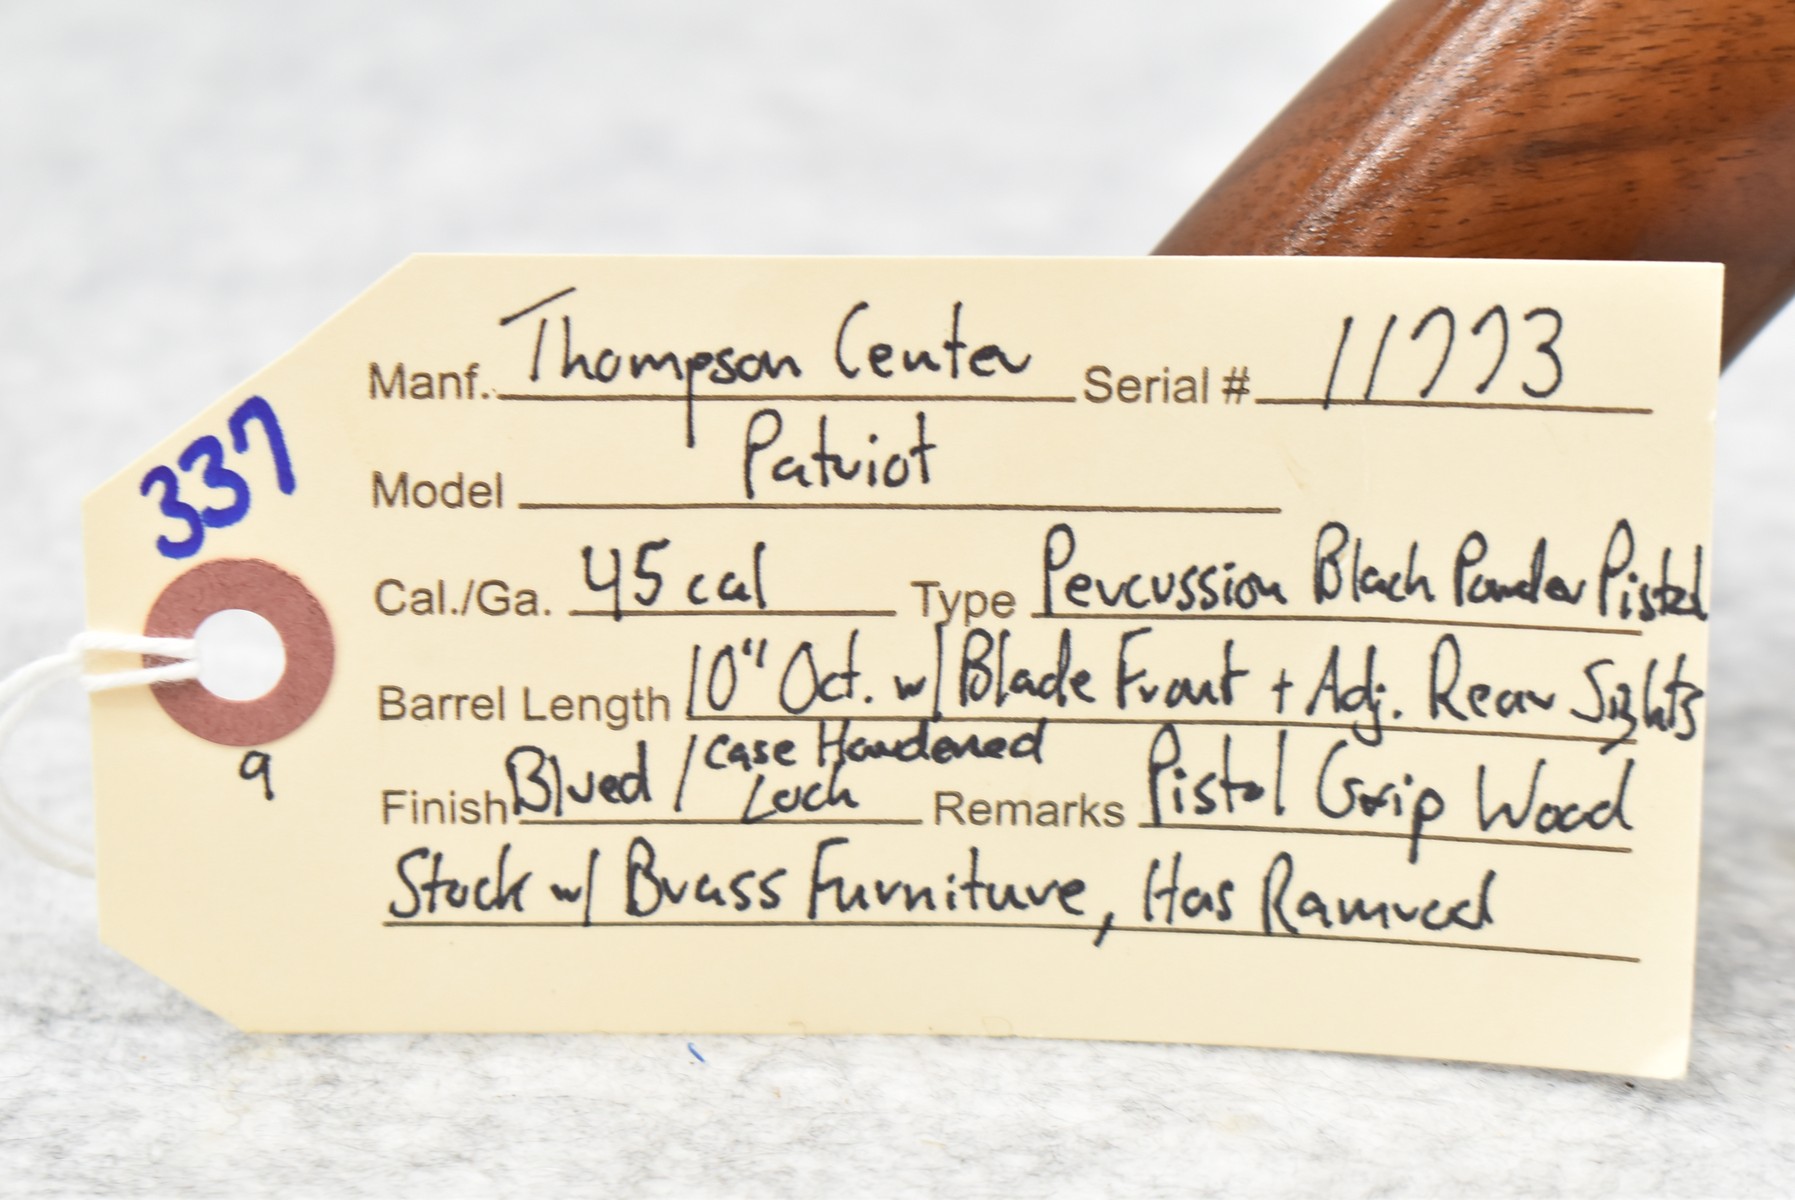 337
9
Manf. Thompson Center Serial # 11773
Model Patriot
Cal./Ga. 45 cal Type Percussion Black Powder Pistol
Barrel Length 10" Oct. w/ Blade Front + Adj. Rear Sights
Finish Blued / Case Hardened Lock Remarks Pistol Grip Wood
Stock w/ Brass Furniture, Has Ramrod